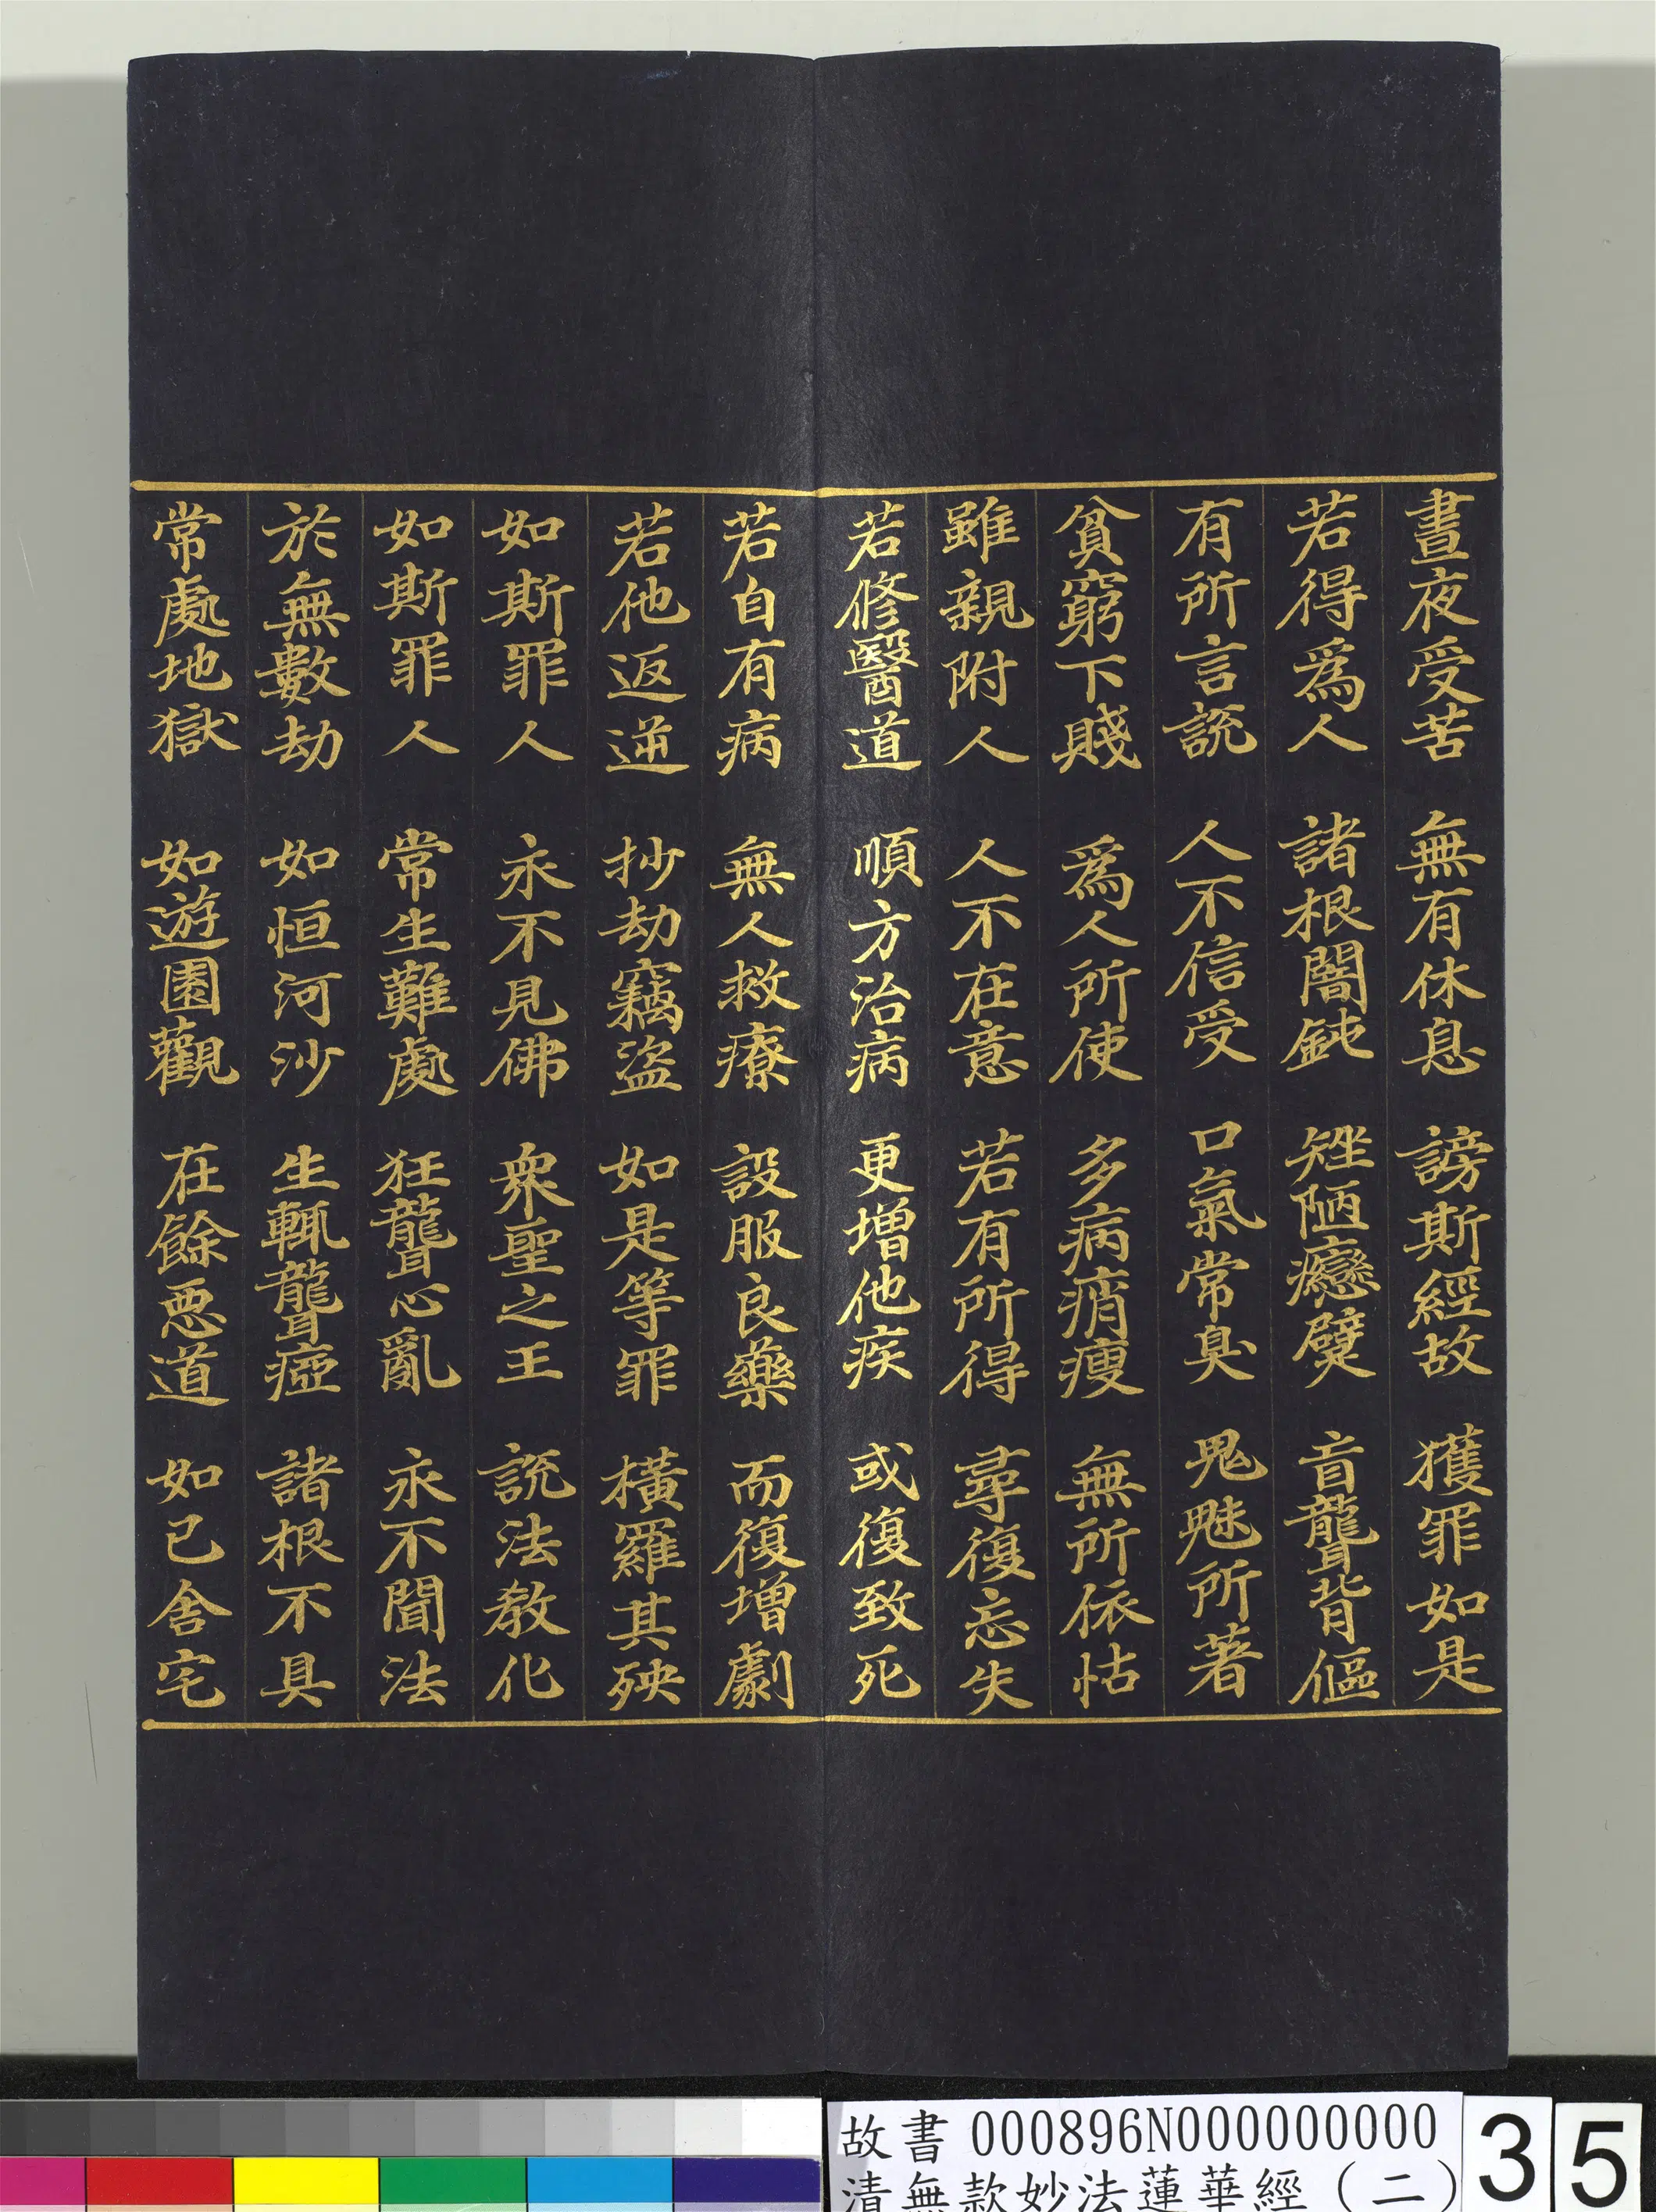 晝夜受苦 無有休息 謗斯經故 獲罪如是
若得爲人 諸根闇鈍 矬陋癵躄 盲聾背傴
有所言說 人不信受 口氣常臭 鬼魅所著
貧窮下賤 爲人所使 多病痟瘦 無所依怙
雖親附人 人不在意 若有所得 尋復忘失
若修醫道 順方治病 更增他疾 或復致死
若自有病 無人救療 設服良藥 而復增劇
若他返逆 抄劫竊盜 如是等罪 橫羅其殃
如斯罪人 永不見佛 衆聖之王 說法教化
如斯罪人 常生難處 狂聾心亂 永不聞法
於無數劫 如恒河沙 生輒聾瘂 諸根不具
常處地獄 如遊園觀 在餘惡道 如已舍宅
故書 000896N000000000
清無款妙法蓮華經（二）
35